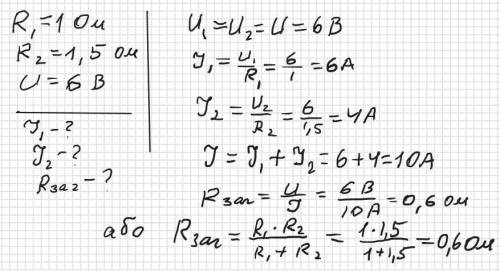 R₁=1 Ом
R₂=1,5 ом
U=6 В
I₁-?
I₂-?
Rзаг-?
U₁=U₂=U=6В
I₁=U₁/R₁=6/1=6А
I₂=U₂/R₂=6/1,5=4А
I=I₁+I₂=6+4=10А
Rзаг=U/I=6В/10А=0,6 ом
або Rзаг=R₁·R₂/R₁+R₂=1·1,5/1+1,5=0,6 ом